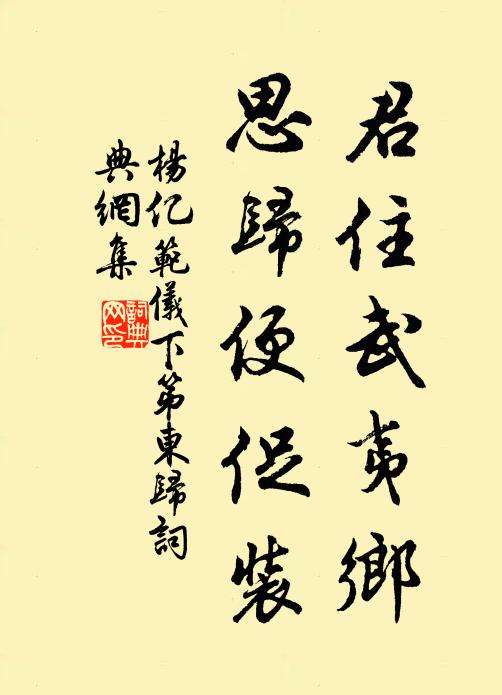 君住武夷鄉
思歸便促裝
楊億範儀下第東歸詞
典網集
詞典網印